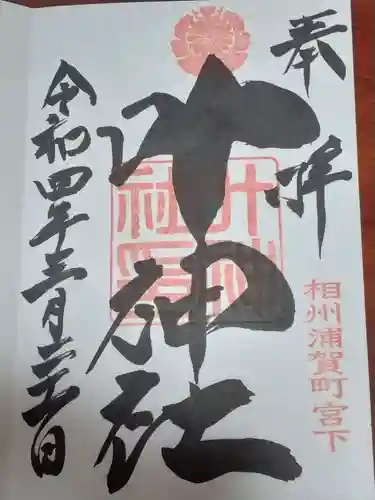 奉拝
相州浦賀町宮下
叶神社
叶神社印
令和四年三月二十一日